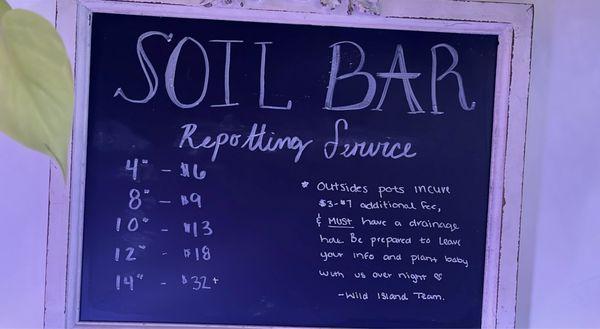 SOIL BAR
Repotting Service
4" - $6
8" - $9
10" - $13
12" - $18
14" - $32+
* Outsides pots incure
$3-$7 additional fee,
& MUST have a drainage
hole. Be prepared to leave
your info and plant baby
with us over night ♡
- Wild Island Team.